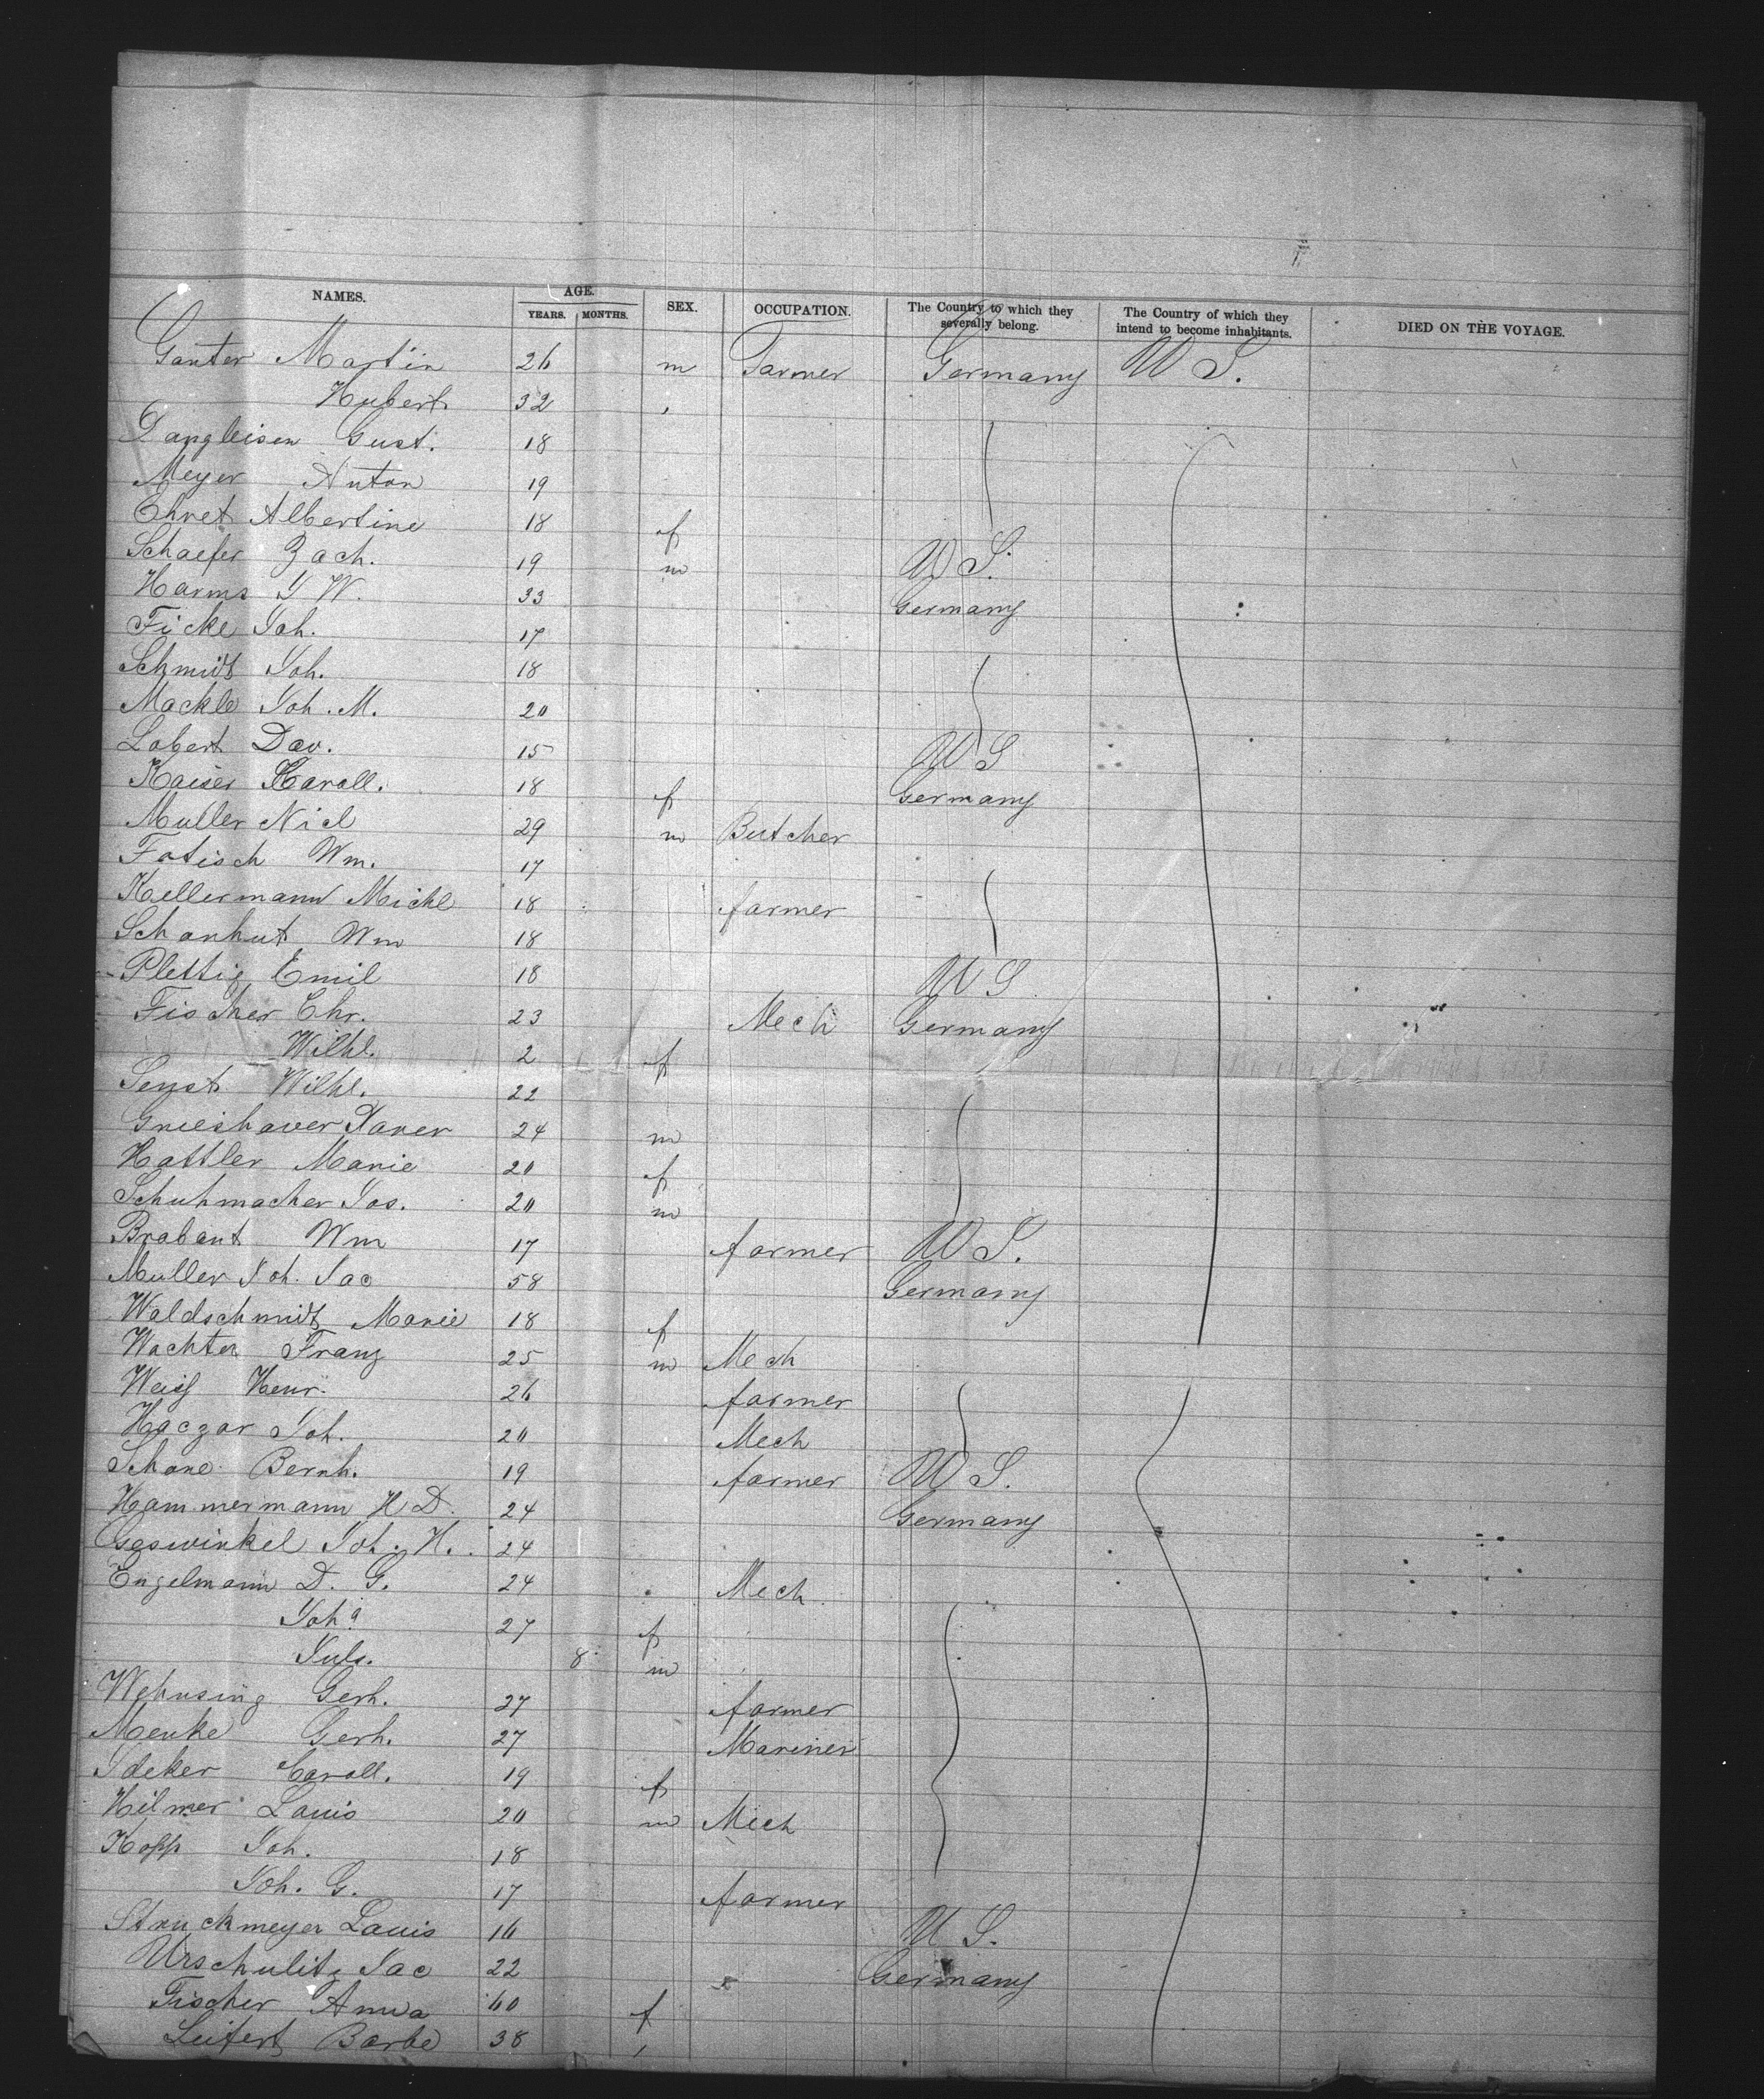 NAMES. AGE. YEARS. MONTHS. SEX. OCCUPATION. The Country to which they severally belong. The Country of which they intend to become inhabitants. DIED ON THE VOYAGE.
Ganter Martin 26 m Farmer Germany U S.
Hubert 32 "
Dangleisen Gust. 18
Meyer Anton 19
Ehret Albertine 18 f
Schaefer Zach. 19 m U S.
Harms J W. 33 Germany
Ficke Joh. 17
Schmidt Joh. 18
Mackle Joh. M. 20
Labert Dav. 15 U S
Kaiser Caroll. 18 f Germany
Muller Nicl 29 m Butcher
Fotisch Wm. 17
Kellermann Michl 18 farmer
Schanhut Wm 18
Plettig Emil 18 U S
Fischer Chr. 23 Mech Germany
Wilhl. 2 f
Senst Wilhl. 22
Grieshaver Xaver 24 m
Hattler Marie 20 f
Schuhmacher Jos. 20 m
Brabant Wm 17 farmer U S.
Muller Joh. Jac 58 Germany
Waldschmidt Marie 18 f
Wachter Franz 25 m Mech
Weiss Henr. 26 farmer
Haczar Joh. 20 Mech
Schone Bernh. 19 farmer U S.
Hammermann H D. 24 Germany
Goswinkel Joh. H. 24
Engelmann D. G. 24 Mech
Joha 27 f
Juls. 8 m
Wehnsing Gerh. 27 farmer
Menke Gerh. 27 Mariner
Ideker Caroll. 19 f
Hilmer Louis 20 m Mech
Kopp Joh. 18
Joh. G. 17 farmer
Struckmeyer Louis 16 U S.
Urschulitz Jac 22 Germany
Fischer Anna 60 f
Leifert Barbe 38 "